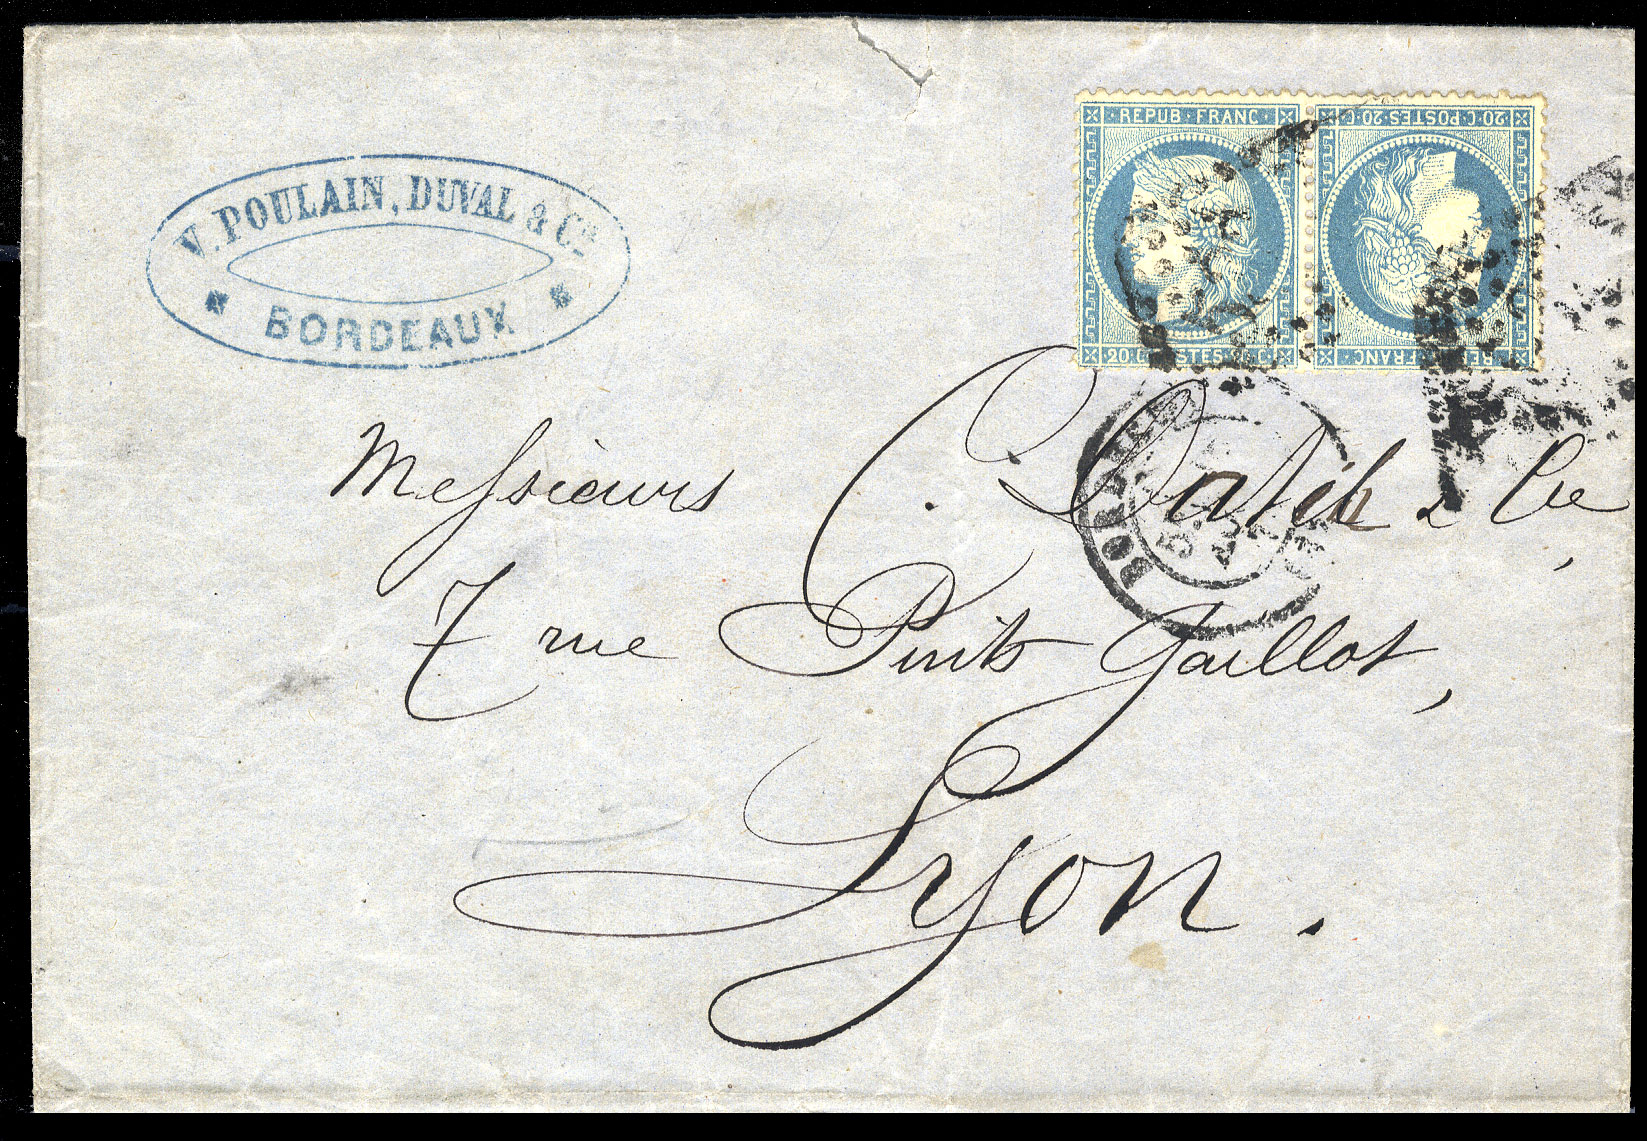 V. POULAIN, DUVAL & Cie
BORDEAUX
REPUB · FRANC ·
20 · C · POSTES · 20 · C ·
20 · C · POSTES · 20 · C ·
REPUB · FRANC
BORDEAUX
5
Messieurs C. & Cie,
7 rue Puits Gaillot,
Lyon.